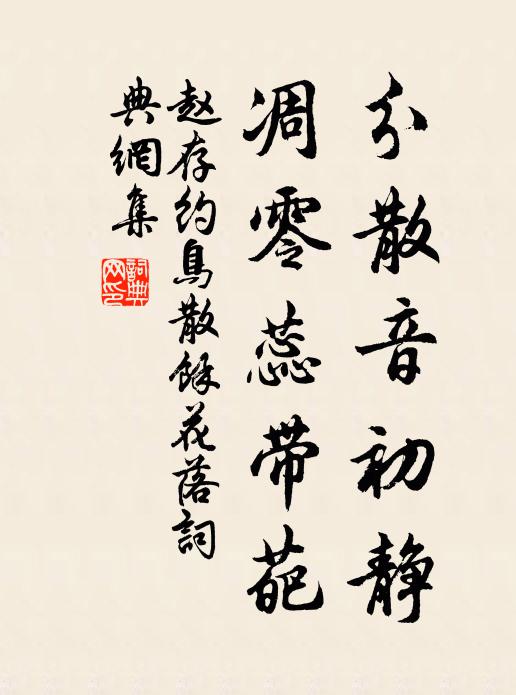 分散音初静
凋零蕊带葩
赵存约鳥散餘花落詞
典網集
詞典
网印